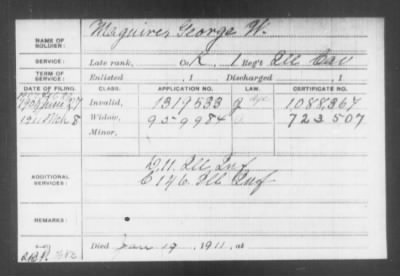 NAME OF SOLDIER: Maguires George W.
SERVICE: Late rank, Co. K, 1 Reg't Ill Cav
TERM OF SERVICE: Enlisted , 1 Discharged , 1
DATE OF FILING. CLASS. APPLICATION NO. LAW. CERTIFICATE NO.
1904 June 27 Invalid, 1319533 1088367
1911 Mch 8 Widow, 959984 723507
Minor,
ADDITIONAL SERVICES: D. 11. Ill Inf
E 146. Ill Inf
REMARKS:
Died Jan 19, 1911, at